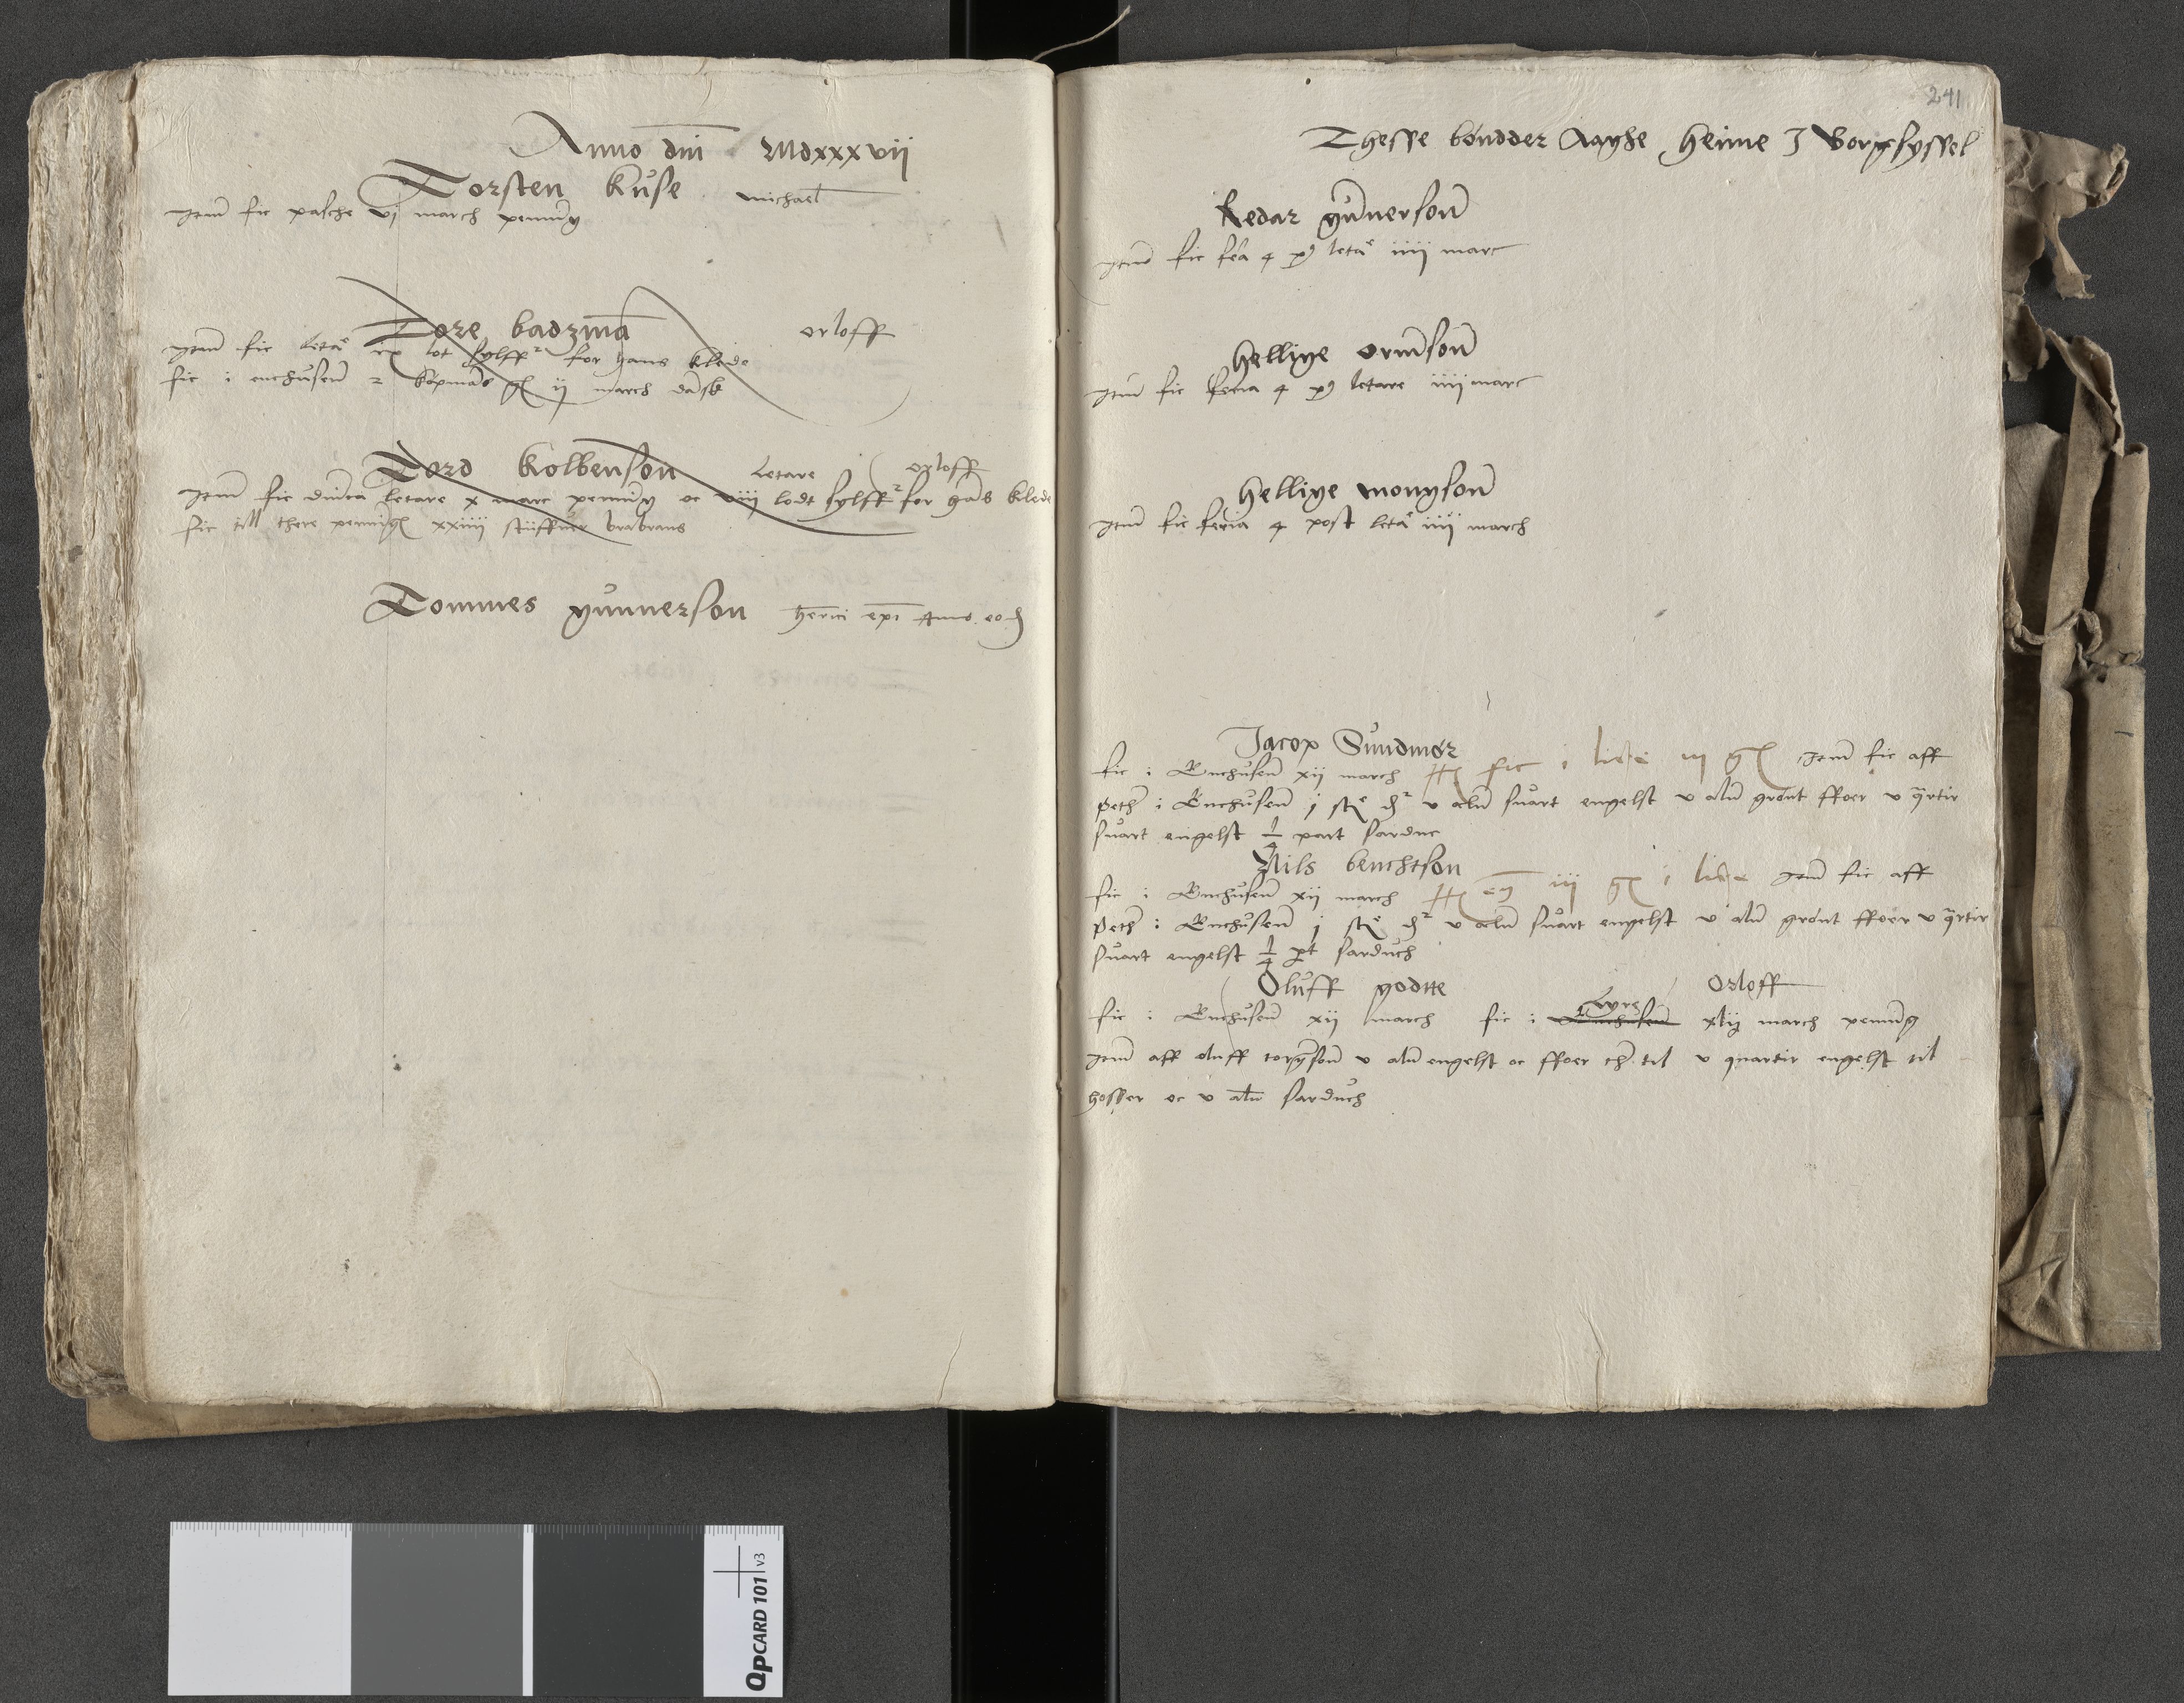 Anno dni Mdxxxvii
Torsten kuse michael
Item fic pasche vj march penning
Tore badzma orloff
Item fic leta ix lot sylff for hans klede
fic i enchusen 2 kopmans ij march dansk
Tord kolbenson letare orloff
Item fic dnica letare x marc penning oc viij lodt sylff for hans klede
fic till there xxiiij stuffuer brabrans
Tommes gunnerson henrici epi Anno eod
241
Thesse bóndder Aaghe heime J Borgesyssel
Redar gunnerson
Item fic fea 4 p leta iiij marc
hellige ormson
Item fic feria 4 p letare iiij marc
hellige mongson
Item fic feria 4 post leta iiij march
Jacop Sundmór
fic i Enchusen xij march fic i lire iij g Item fic aff
Peth i Enchusen j v aln suart engelst v aln grónt ffoer v qrtir
suart engelst 1/4 part sarduc
Nils benchtson
fic i Enchusen xij march iij g i lire Item fic aff
Peth i Enchusen j v aln suart engelst v aln grónt ffoer v qrtir
suart engelst 1/4 pt sarduch
Oluff godtte Orloff
lyre
fic i Enchusen xij march fic i Enchusen xlij march penning
Item aff oluff torgson v aln engelst oc ffoer th til v quartir engelst til
hosser oc v aln sarduch
QpCARD 101 v3